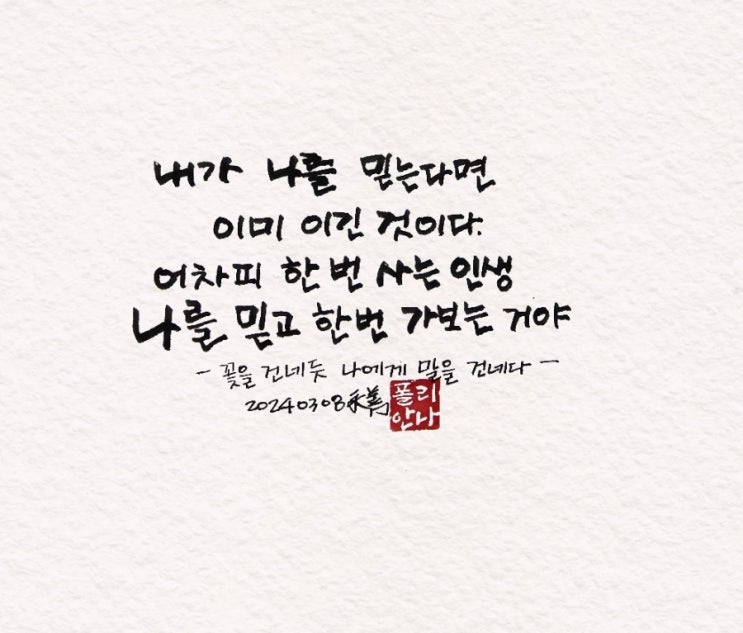 내가 나를 믿는다면
이미 이긴 것이다.
어차피 한 번 사는 인생
나를 믿고 한번 가보는 거야
- 꽃을 건네듯 나에게 말을 건네다 -
20240308
폴리
안나